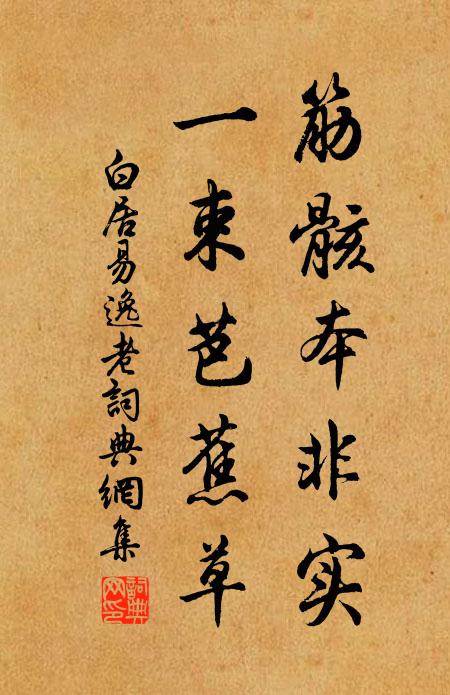 筋骸本非实
一束芭蕉草
白居易逸老詞典網集
詞典网印